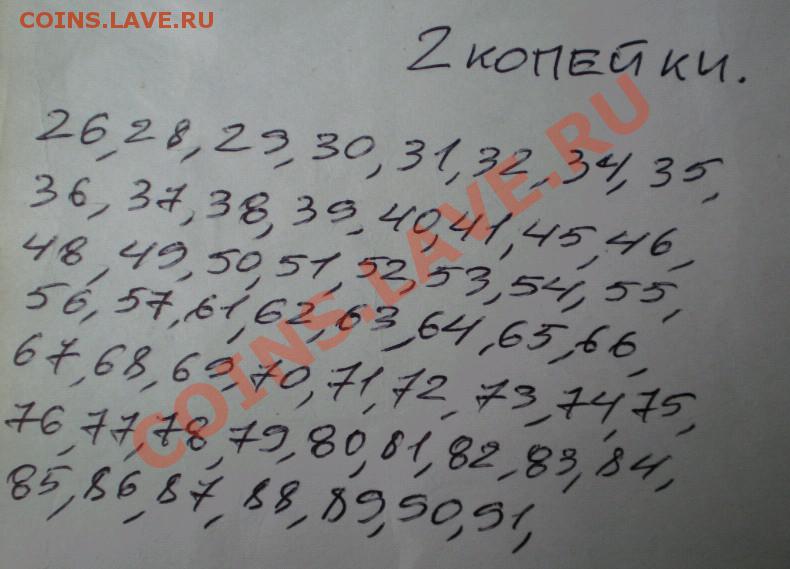 COINS.LAVE.RU
2 копейки.
26, 28, 29, 30, 31, 32, 34, 35,
36, 37, 38, 39, 40, 41, 45, 46,
48, 49, 50, 51, 52, 53, 54, 55,
56, 57, 61, 62, 63, 64, 65, 66,
67, 68, 69, 70, 71, 72, 73, 74, 75,
76, 77, 78, 79, 80, 81, 82, 83, 84,
85, 86, 87, 88, 89, 90, 91,
COINS.LAVE.RU